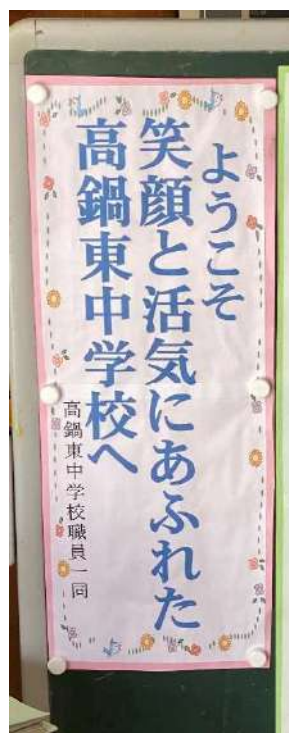 ようこそ
笑顔と活気にあふれた
高鍋東中学校へ
高鍋東中学校職員一同